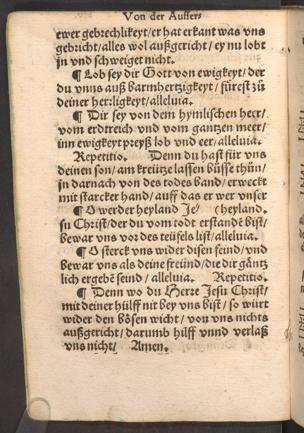 Von der Auffers
ewer gebrechlikeyt/er hat erkant was vns
gebricht/alles wol außgericht/ey nu lobt
jn vnd schweiget nicht.
¶ Lob sey dir Gott von ewigkeyt/der
du vnns auß barmhertzigkeyt/fürest zů
deiner herrligkeyt/alleluia.
¶ Dir sey von dem hymlischen heer/
vom erdtreich vnd vom gantzen meer/
inn ewigkeyt preyß lob vnd eer/alleluia.
Repetitio. Denn du hast für vns
deinen son/am kreütze lassen büsse thün/
jn darnach von des todes band/erweckt
mit starcker hand/auff das er wer vnser
¶ O werder heyland Je⸗ (heyland.
su Christ/der du vom todt erstandē bist/
bewar vns vor des teüfels list/alleluia.
¶ O sterck vns wider disen feind/vnd
bewar vns als deine freünd/die dir gäntz
lich ergebē seind/alleluia. Repetitio.
¶ Denn wo du Herre Jesu Christ/
mit deiner hülff nit bey vns bist/so würt
wider den bösen wicht/von vns nichts
außgericht/darumb hilff vnnd verlaß
vns nicht/ Amen.